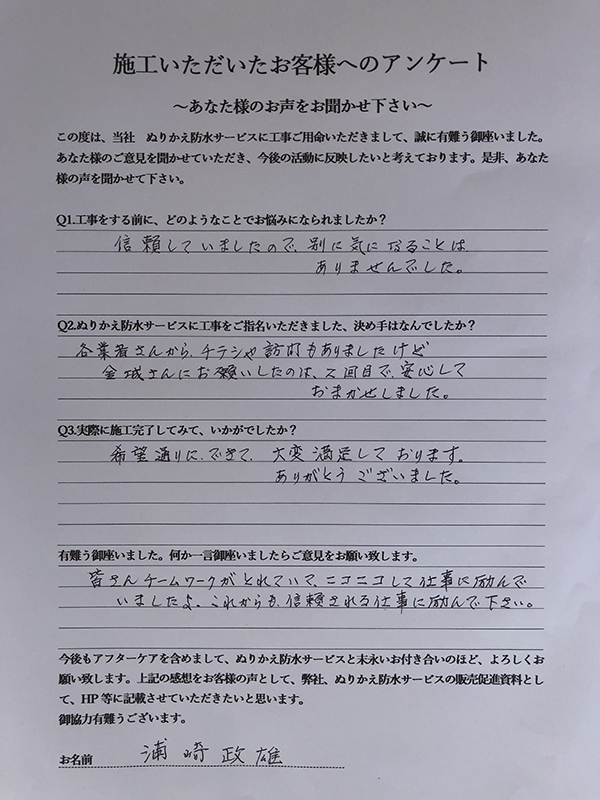 施工いただいたお客様へのアンケート
～あなた様のお声をお聞かせ下さい～
この度は、当社　ぬりかえ防水サービスに工事ご用命いただきまして、誠に有難う御座いました。
あなた様のご意見を聞かせていただき、今後の活動に反映したいと考えております。是非、あなた
様の声を聞かせて下さい。
Q1.工事をする前に、どのようなことでお悩みになられましたか？
信頼していましたので、別に気になることは
ありませんでした。
Q2.ぬりかえ防水サービスに工事をご指名いただきました、決め手はなんでしたか？
各業者さんから、チラシや訪問もありましたけど
金城さんにお願いしたのは、2回目で、安心して
おまかせしました。
Q3.実際に施工完了してみて、いかがでしたか？
希望通りに、できて、大変満足しております。
ありがとうございました。
有難う御座いました。何か一言御座いましたらご意見をお願い致します。
皆さんチームワークがとれていて、ニコニコして仕事に励んで
いましたよ。これからも、信頼される仕事に励んで下さい。
今後もアフターケアを含めまして、ぬりかえ防水サービスと末永いお付き合いのほど、よろしくお
願い致します。上記の感想をお客様の声として、弊社、ぬりかえ防水サービスの販売促進資料とし
て、HP 等に記載させていただきたいと思います。
御協力有難うございます。
お名前　浦崎政雄